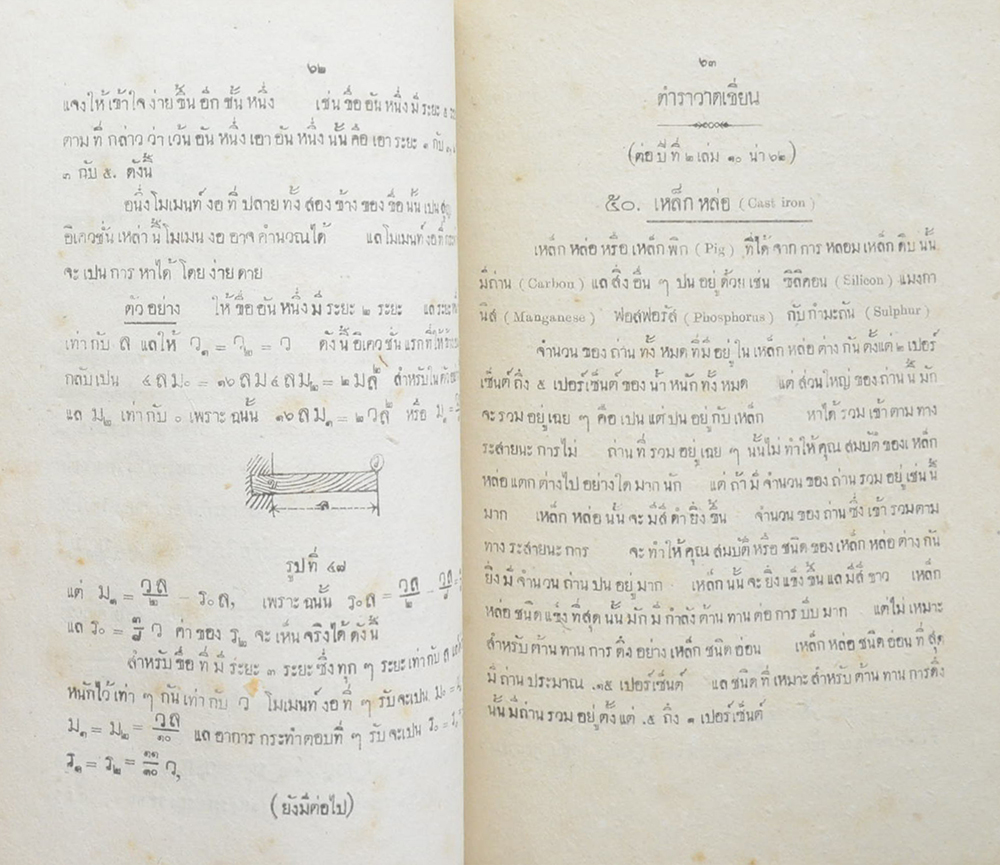 ๖๒
แจงให้เข้าใจง่ายขึ้นอีกชั้นหนึ่ง เช่นขื่ออันหนึ่งมีระยะ ๕
ตามที่กล่าวว่าเว้นอันหนึ่งเอาอันหนึ่งนั้นคือเอาระยะ ๑ กับ
๓ กับ ๕. ดังนี้
อนึ่งโมเมนท์งอที่ปลายทั้งสองข้างของขื่อนั้นเปน
อิเควชั่นเหล่านี้โมเมนงออาจคำนวณได้ แลโมเมนท์งอที่
จะเปนการหาได้โดยง่ายดาย
ตัวอย่าง ให้ขื่ออันหนึ่งมีระยะ ๒ ระยะ แลระยะ
เท่ากับ ล แลให้ ว๑ = ว๒ = ว ดังนี้อิเควชั่นแรกที่ให้
กลับเปน ๔ลม๐ = ๑๖ลม๔ลม๒ = ๒มล๒ สำหรับในตัว
แล ม๒ เท่ากับ ๐ เพราะฉนั้น ๑๖ลม๑ = ๒วล๒ หรือ ม๑ =
ล
รูปที่ ๔๘
แต่ ม๑ = วล/๒ − ร๐ล, เพราะฉนั้น ร๐ล = วล/๒ −
แล ร๐ = ๓/๘ ว ค่าของ ร๒ จะเห็นจริงได้ดังนี้
สำหรับขื่อที่มีระยะ ๓ ระยะซึ่งทุก ๆ ระยะเท่ากับ ล
หนักไว้เท่า ๆ กันเท่ากับ ว โมเมนท์งอที่ ๆ รับจะเปน ม๐ =
ม๑ = ม๒ = วล/๑๐ แลอาการกระทำตอบที่ ๆ รับจะเปน ร๐ =
ร๑ = ร๒ = ๑๑/๑๐ ว,
(ยังมีต่อไป)
๖๓
ตำราวาดเขียน
(ต่อปีที่ ๒ เล่ม ๑๐ น่า ๖๒)
๕๐. เหล็กหล่อ (Cast iron)
เหล็กหล่อหรือเหล็กพิก (Pig) ที่ได้จากการหลอมเหล็กดิบนั้น
มีถ่าน (Carbon) แลสิ่งอื่น ๆ ปนอยู่ด้วยเช่น ซิลิคอน (Silicon) แมงกา
นิส (Manganese) ฟอสฟอรัส (Phosphorus) กับกำมะถัน (Sulphur)
จำนวนของถ่านทั้งหมดที่มีอยู่ในเหล็กหล่อต่างกันตั้งแต่ ๒ เปอร์
เซ็นต์ถึง ๕ เปอร์เซ็นต์ของน้ำหนักทั้งหมด แต่ส่วนใหญ่ของถ่านนี้มัก
จะรวมอยู่เฉย ๆ คือเปนแต่ปนอยู่กับเหล็ก หาได้รวมเข้าตามทาง
ระสายนะการไม่ ถ่านที่รวมอยู่เฉย ๆ นั้นไม่ทำให้คุณสมบัติของเหล็ก
หล่อแตกต่างไปอย่างใดมากนัก แต่ถ้ามีจำนวนของถ่านรวมอยู่เช่นนี้
มาก เหล็กหล่อนั้นจะมีสีดำยิ่งขึ้น จำนวนของถ่านซึ่งเข้ารวมตาม
ทางระสายนะการ จะทำให้คุณสมบัติหรือชนิดของเหล็กหล่อต่างกัน
ยิ่งมีจำนวนถ่านปนอยู่มาก เหล็กนั้นจะยิ่งแข็งขึ้นแลมีสีขาว เหล็ก
หล่อชนิดแข็งที่สุดนั้นมักมีกำลังต้านทานต่อการบีบมาก แต่ไม่เหมาะ
สำหรับต้านทานการดึงอย่างเหล็กชนิดอ่อน เหล็กหล่อชนิดอ่อนที่สุด
มีถ่านประมาณ .๑๕ เปอร์เซ็นต์ แลชนิดที่เหมาะสำหรับต้านทานการดึง
นั้นมีถ่านรวมอยู่ตั้งแต่ .๕ ถึง ๑ เปอร์เซ็นต์